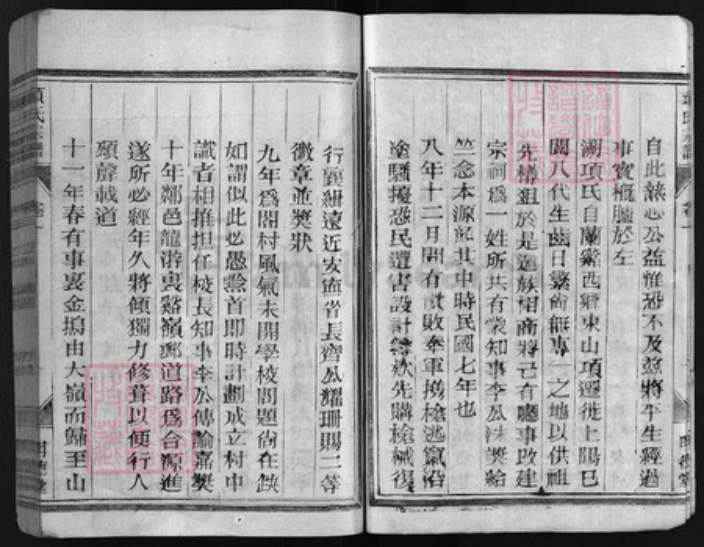 自此熱心公益惟恐不及茲將平生經過
事實概臚於左
湖項氏自蘭谿西鄉東山項遷徙上陽已
閱八代生齒日繁尙無專一之地以供祖
先禋祖於是邀族相商將己有廳事改建
宗祠爲一姓所共有蒙知事李公沫奬給
竺念本源記其中時民國七年也
八年十二月間有敗軍攜槍逃竄沿
塗騷擾恐民遭害設計籌欵先購槍械復
行襄緝遠近安寧省長齊公耀珊賜二等
徽章並奬狀
九年爲閤村風氣未開學校問題尙在缺
如謂似此必愚黔首即時計劃成立村中
識者相推担任校長知事李公傳諭嘉奬
十年鄰邑龍游裏谿嶺郵道路爲合源進
遂所必經年久將傾獨力修葺以便行人
頌聲載道
十一年春有事裏金塢由大嶺而歸至山
項氏宗譜
卷一